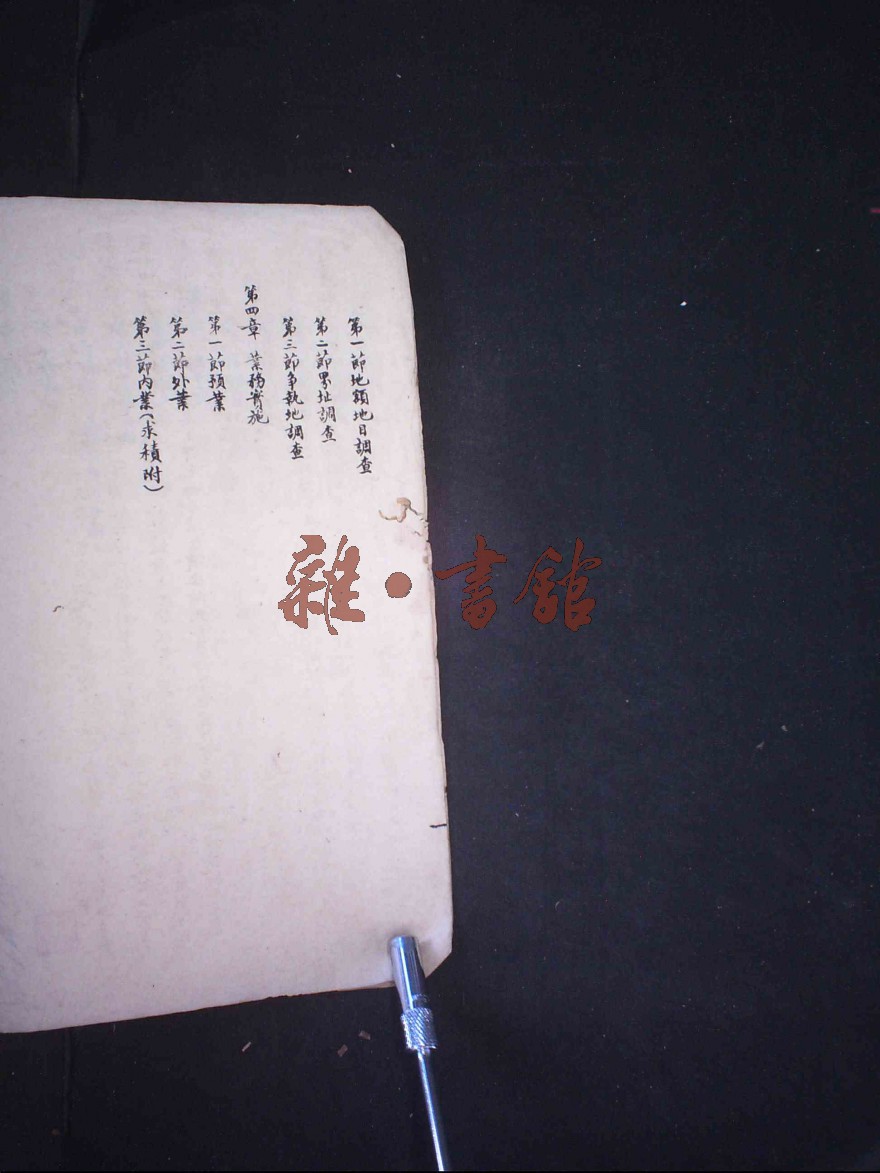 第一節地類地目調查
第二節界址調查
第三節爭執地調查
第四章 業務實施
第一節預業
第二節外業
第三節內業(求積附)
雜·書館